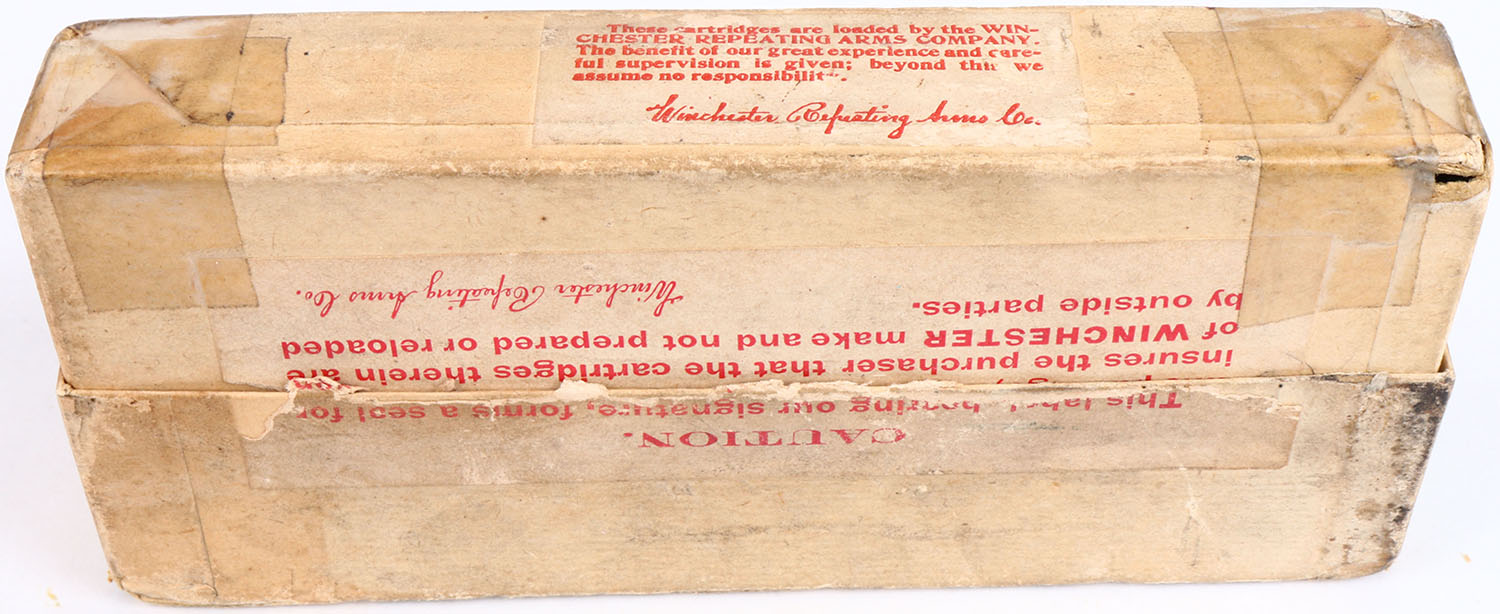 These cartridges are loaded by the WIN-
CHESTER REPEATING ARMS COMPANY.
The benefit of our great experience and care-
ful supervision is given; beyond this we
assume no responsibilit
Winchester Repeating Arms Co.
CAUTION.
This label, bearing our signature, forms a seal for
insures the purchaser that the cartridges therein are
of WINCHESTER make and not prepared or reloaded
by outside parties.
Winchester Repeating Arms Co.